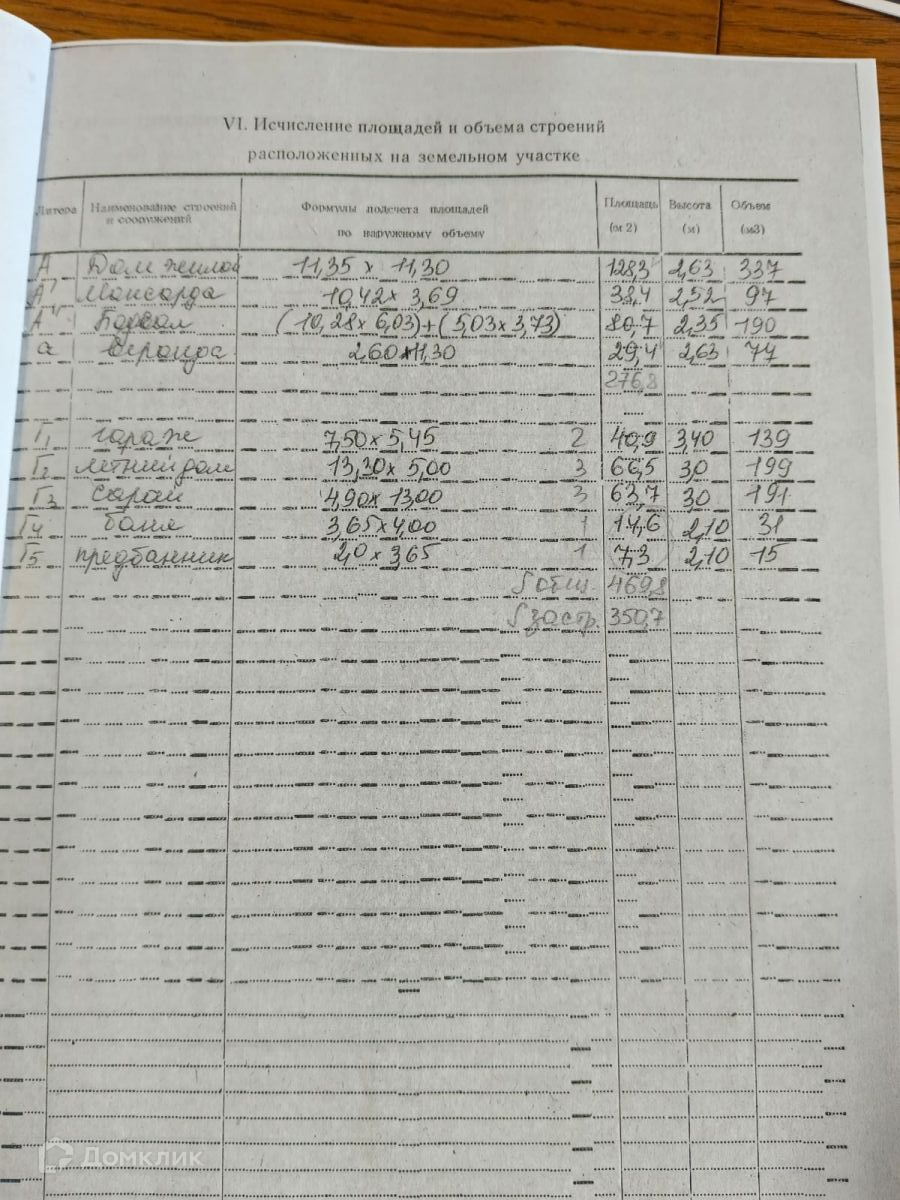 VI. Исчисление площадей и объема строений
расположенных на земельном участке
Литера Наименование строений и сооружений Формулы подсчета площадей по наружному объему Площадь (м 2) Высота (м) Объем (м3)
А Дом жилой 11,35 х 11,30 128,3 2,63 337
А' Мансарда 10,42 х 3,69 38,4 2,52 97
А" (10,28 х 6,03)+(5,03 х 3,73) 80,7 2,35 190
а Веранда 2,60 х 11,30 29,4 2,63 77
276,8
Г1 гараж 7,50 х 5,45 2 40,9 3,40 139
Г2 летний дом 13,30 х 5,00 3 66,5 3,0 199
Г3 сарай 4,90 х 13,00 3 63,7 3,0 191
Г4 баня 3,65 х 4,00 1 14,6 2,10 31
Г5 предбанник 2,0 х 3,65 1 7,3 2,10 15
S общ. 469,8
S застр. 350,7
Домклик